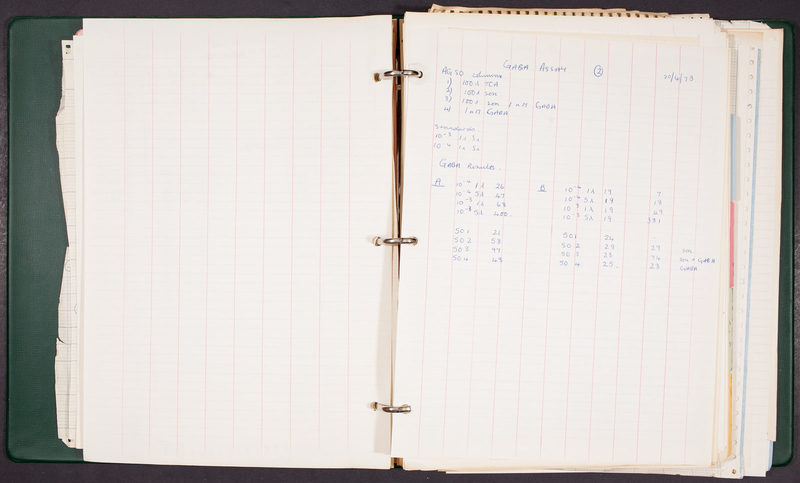 GABA ASSAY ② 20/4/73
AG50 columns
1) 100λ TCA
2) 100λ son
3) 100λ son 1 nM GABA
4) 1 nM GABA
Standards
10⁻³ 1λ 5λ
10⁻⁴ 1λ 5λ
GABA Results.
A 10⁻⁴ 1λ 26 B 10⁻⁴ 1λ 19 7
10⁻⁴ 5λ 47 10⁻⁴ 5λ 19 18
10⁻³ 1λ 68 10⁻³ 1λ 19 49
10⁻³ 5λ 400. 10⁻³ 5λ 19 381
50 1 21 50 1 24
50 2 53 50 2 29 29 son
50 3 97 50 3 23 74 son + GABA
50 4 48 50 4 25. 23 GABA